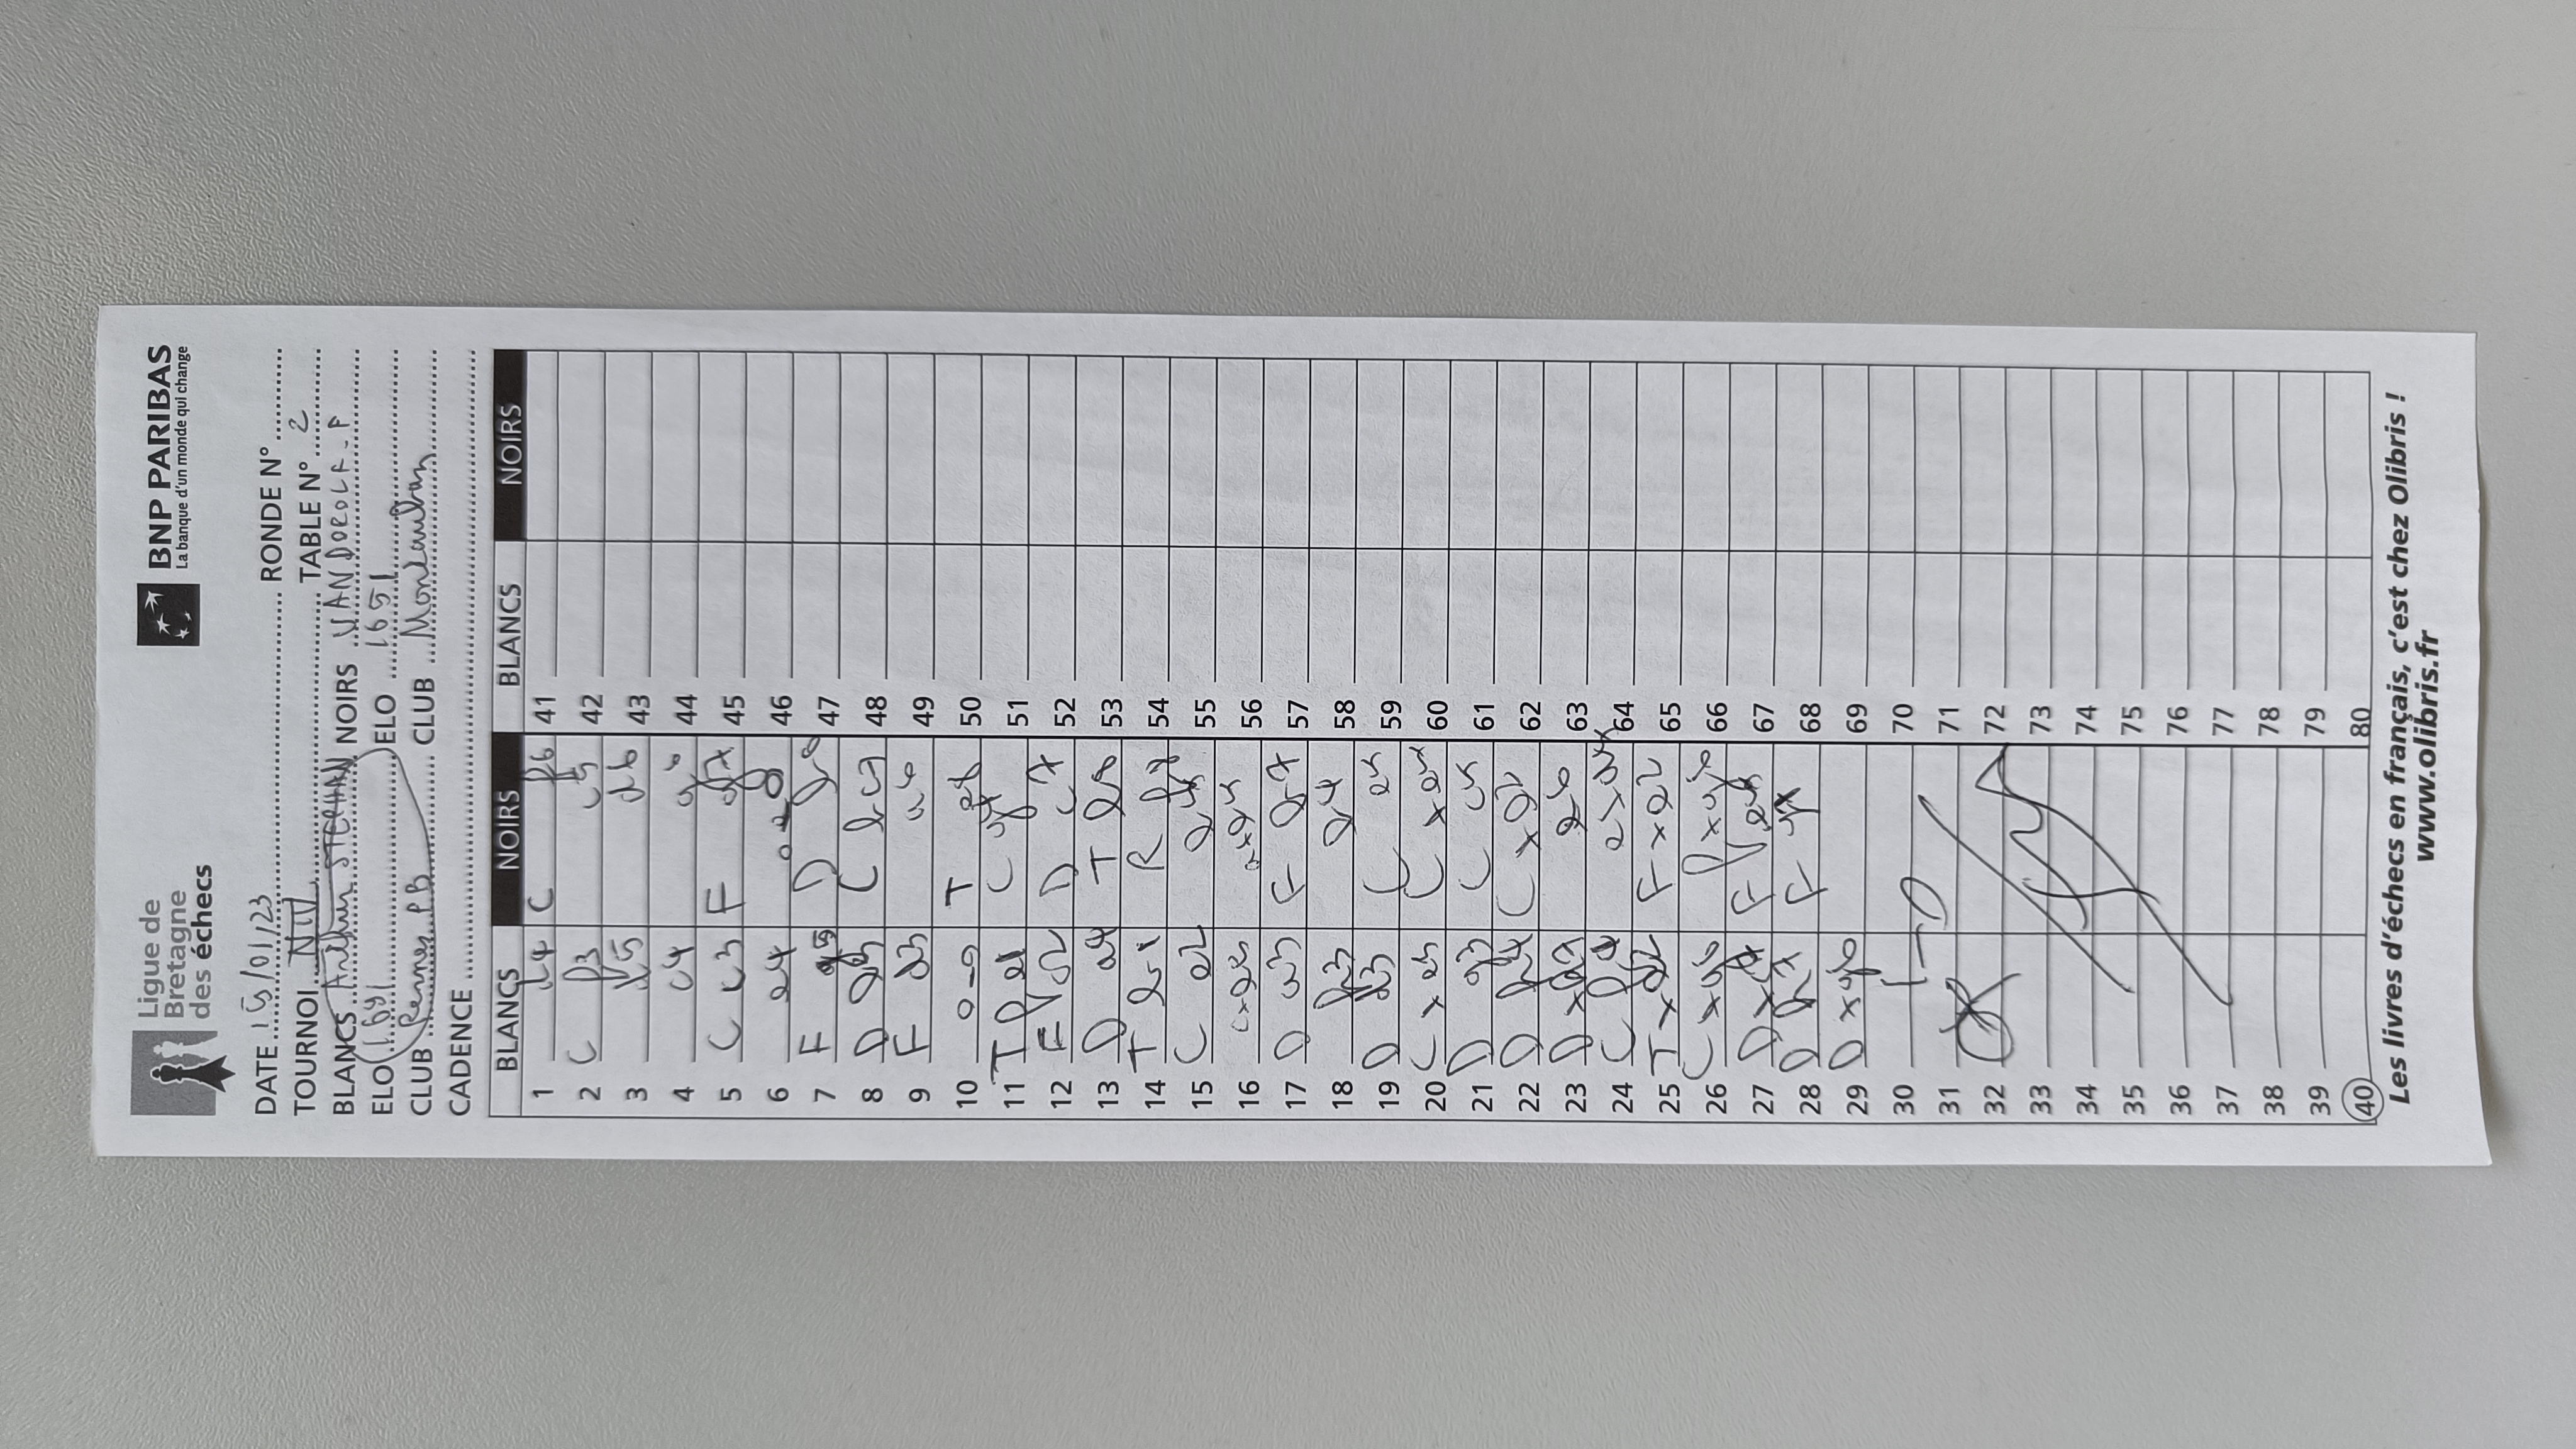 Ligue de
Bretagne
des échecs
BNP PARIBAS
La banque d'un monde qui change
DATE 15/01/23 RONDE N°
TOURNOI NIV TABLE N° 2
BLANCS Arthur STEPHAN NOIRS VANDOROLF - F
ELO 1691 ELO 1651
CLUB Rennes PB CLUB Montauban
CADENCE
BLANCS NOIRS BLANCS NOIRS
1 d4 C f6 41
2 C f3 c5 42
3 d5 d6 43
4 c4 g6 44
5 C c3 F g7 45
6 e4 o-o 46
7 F g5 D b6 47
8 D b3 C bc7 48
9 F d3 a6 49
10 o-o T e8 50
11 T fe1 C g4 51
12 F d2 D c7 52
13 D a4 T b8 53
14 T b1 R f8 54
15 C e2 b5 55
16 cxb5 axb5 56
17 D a3 F b7 57
18 h3 b4 58
19 D d3 C e5 59
20 C xe5 C xe5 60
21 D g3 C c4 61
22 D h4 C xd2 62
23 D xh7 e6 63
24 C f4 exd5 64
25 T xe2 F xe2 65
26 C xg6 fxg6 66
27 D x F e5 67
28 D h7 F g7 68
29 D xg6 69
30 1-0 70
31 71
32 72
33 73
34 74
35 75
36 76
37 77
38 78
39 79
40 80
Les livres d'échecs en français, c'est chez Olibris !
www.olibris.fr